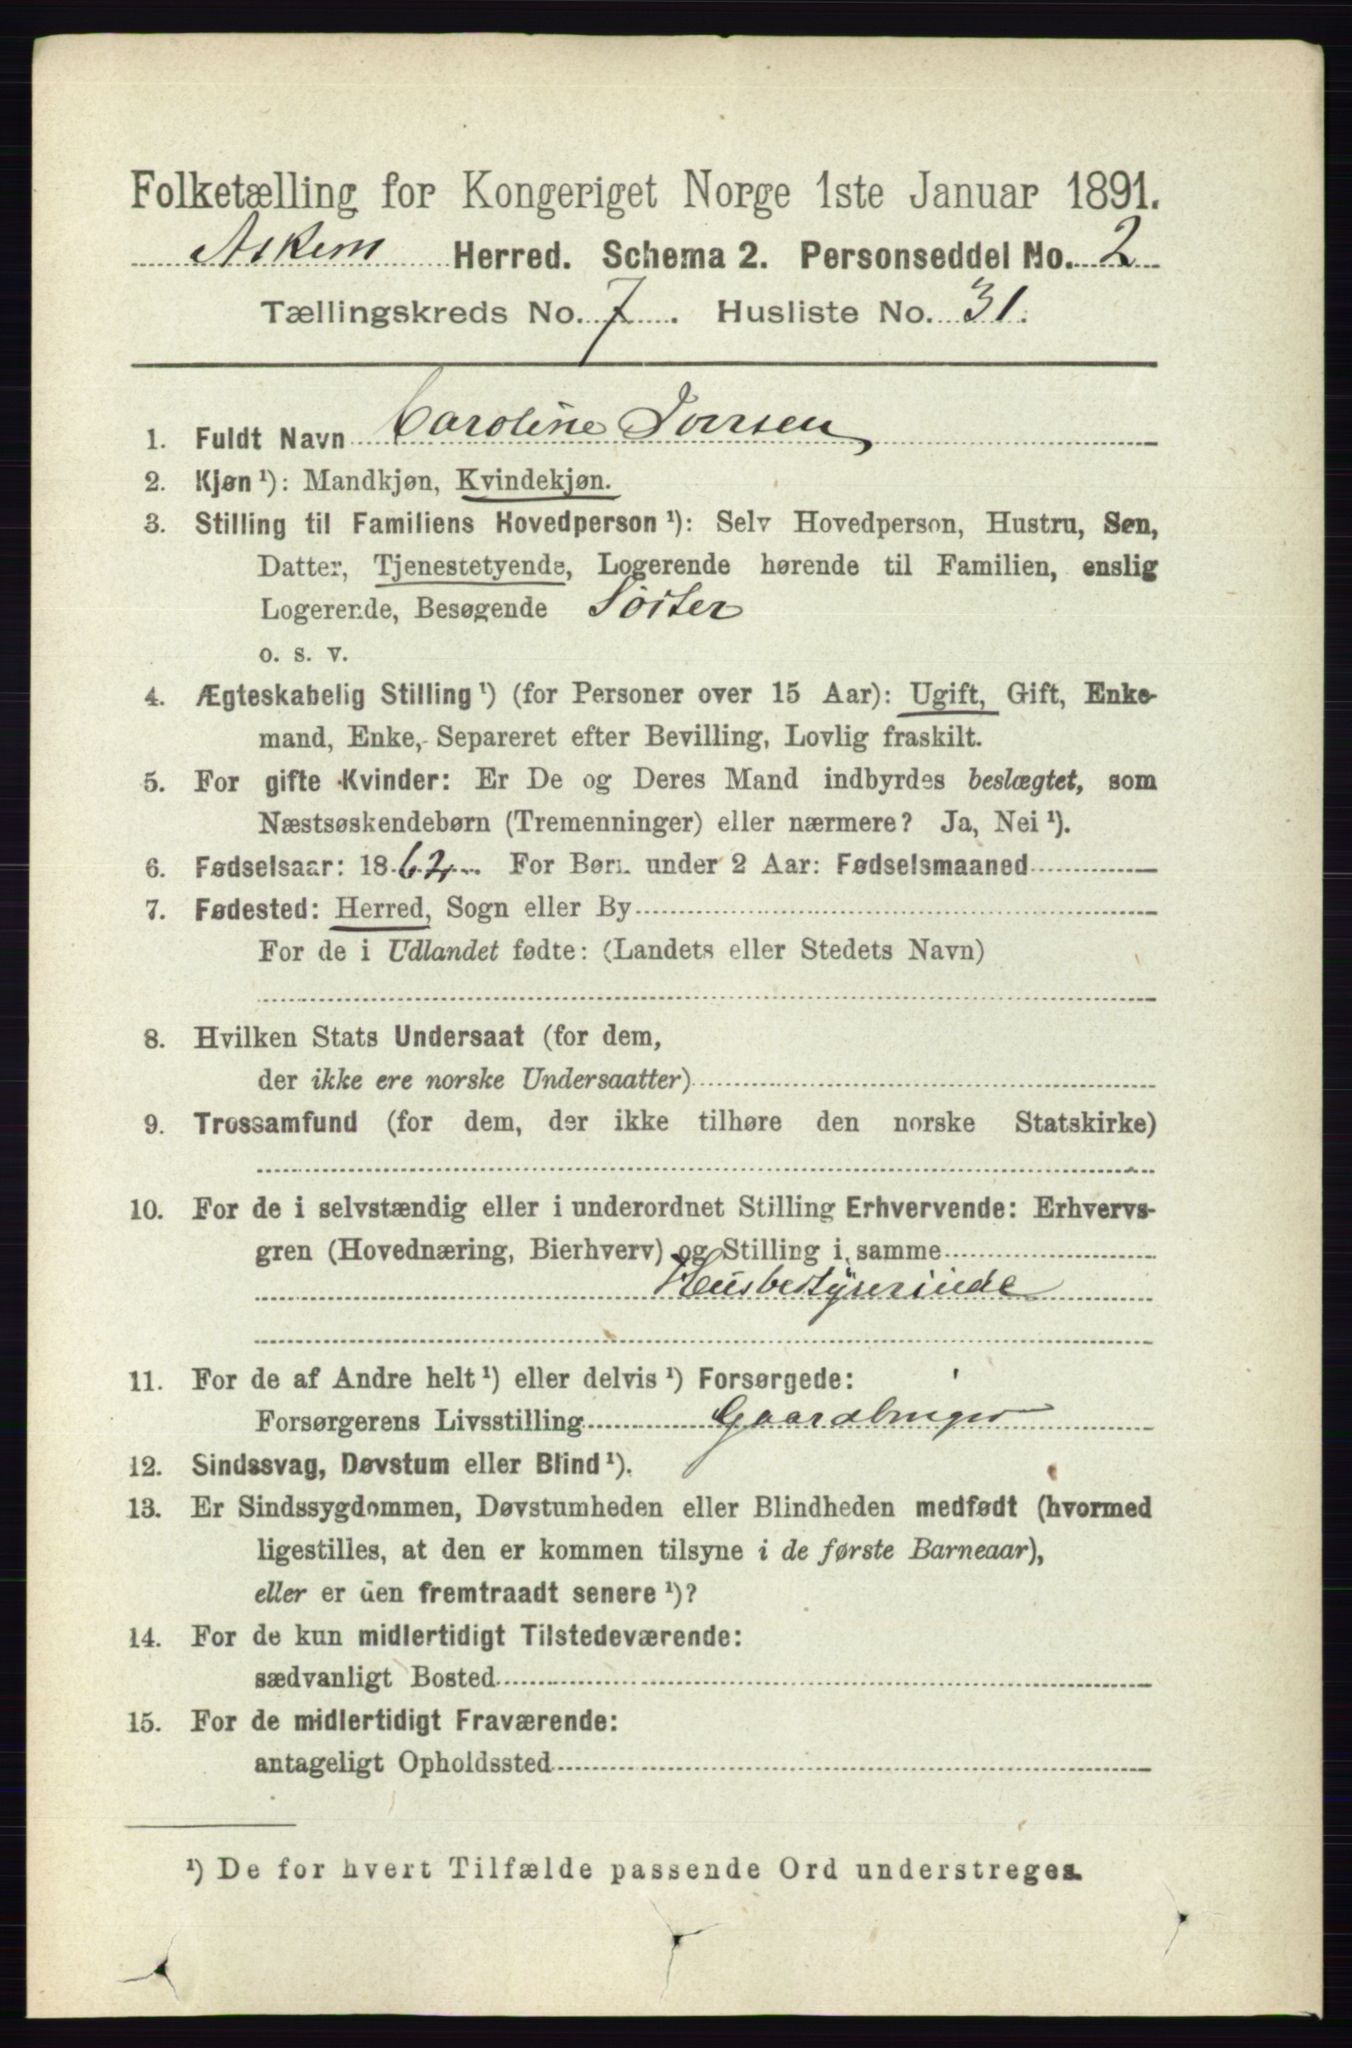 Folketælling for Kongeriget Norge 1ste Januar 1891.
Askim Herred. Schema 2. Personseddel No. 2
Tællingskreds No. 7. Husliste No. 31.
1. Fuldt Navn Caroline Iversen
2. Kjøn ¹): Mandkjøn, Kvindekjøn.
3. Stilling til Familiens Hovedperson ¹): Selv Hovedperson, Hustru, Søn,
Datter, Tjenestetyende, Logerende hørende til Familien, enslig
Logerende, Besøgende Søster
o. s. v.
4. Ægteskabelig Stilling ¹) (for Personer over 15 Aar): Ugift, Gift, Enke-
mand, Enke, Separeret efter Bevilling, Lovlig fraskilt.
5. For gifte Kvinder: Er De og Deres Mand indbyrdes beslægtet, som
Næstsøskendebørn (Tremenninger) eller nærmere? Ja, Nei ¹).
6. Fødselsaar: 1862. For Børn under 2 Aar: Fødselsmaaned
7. Fødested: Herred, Sogn eller By
For de i Udlandet fødte: (Landets eller Stedets Navn)
8. Hvilken Stats Undersaat (for dem,
der ikke ere norske Undersaatter)
9. Trossamfund (for dem, der ikke tilhøre den norske Statskirke)
10. For de i selvstændig eller i underordnet Stilling Erhvervende: Erhvervs-
gren (Hovednæring, Bierhverv) og Stilling i samme
Husbestyrerinde
11. For de af Andre helt ¹) eller delvis ¹) Forsørgede:
Forsørgerens Livsstilling Gaardbruger
12. Sindssvag, Døvstum eller Blind ¹).
13. Er Sindssygdommen, Døvstumheden eller Blindheden medfødt (hvormed
ligestilles, at den er kommen tilsyne i de første Barneaar),
eller er den fremtraadt senere ¹)?
14. For de kun midlertidigt Tilstedeværende:
sædvanligt Bosted
15. For de midlertidigt Fraværende:
antageligt Opholdssted
¹) De for hvert Tilfælde passende Ord understreges.